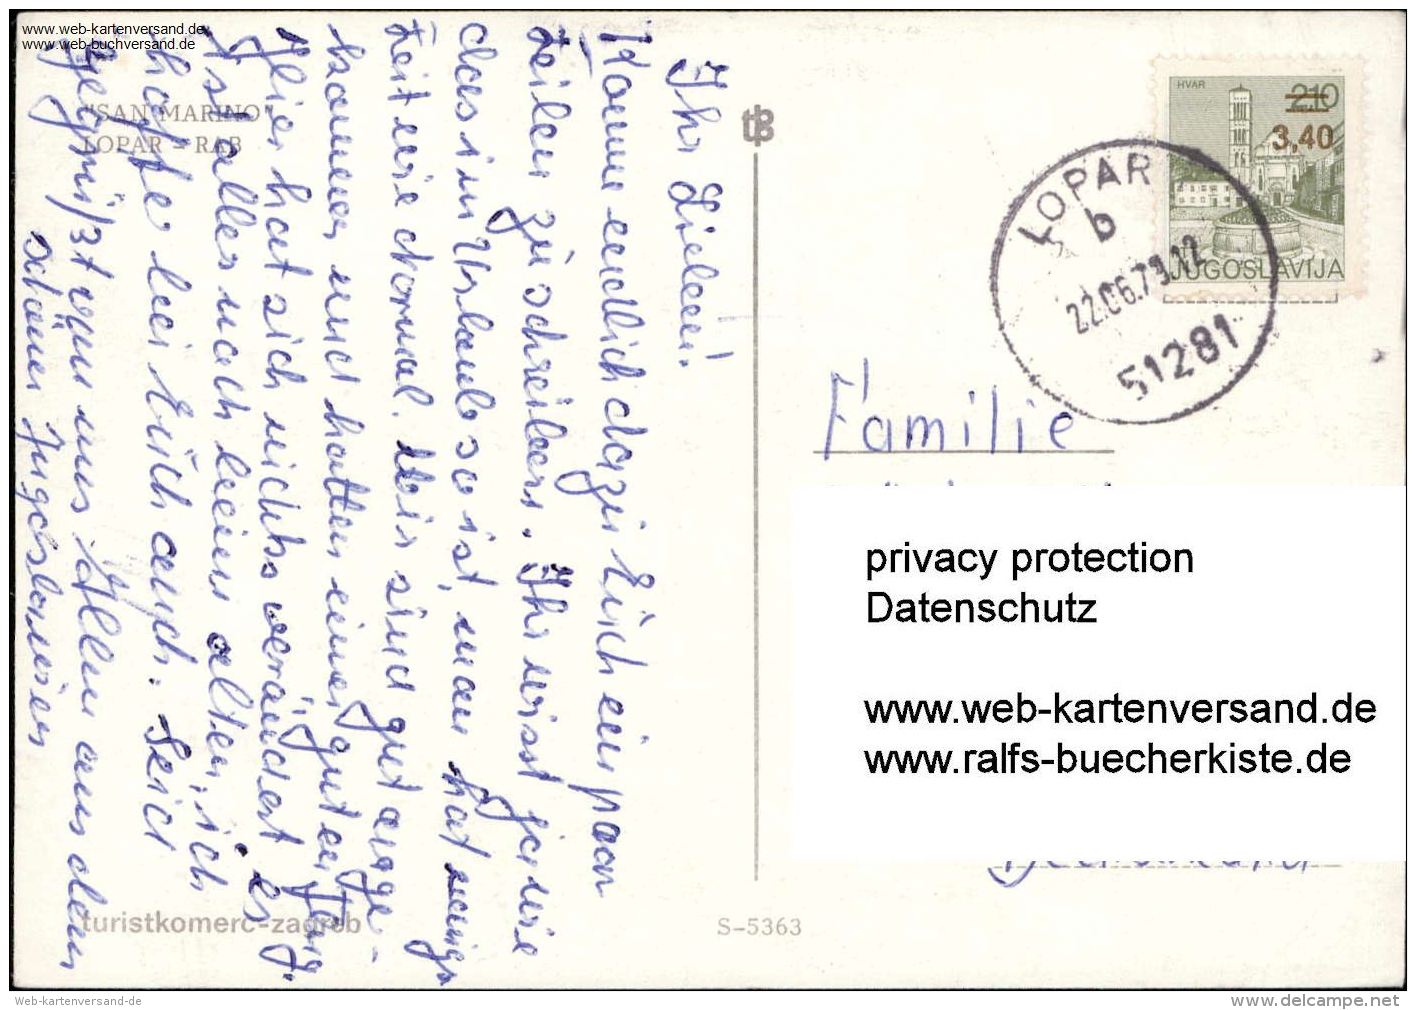 www.web-kartenversand.de
www.web-buchversand.de
"SAN MARINO"
LOPAR – RAB
Ihr Lieben!
Komme endlich dazu Euch ein paar
Zeilen zu schreiben. Ihr wisst ja wie
das im Urlaub so ist, man hat wenig
Zeit wie normal. Wir sind gut ange-
kommen und hatten einen guten Tag.
Hier hat sich nichts verändert es
ist alles noch beim alten, ich
hoffe bei Euch auch. Seid
gegrüßt von uns Allen aus dem
schönen Jugoslawien
turistkomerc-zagreb
S-5363
HVAR
2.10
3,40
JUGOSLAVIJA
LOPAR
b
22.06.79.12
51281
Familie
privacy protection
Datenschutz
www.web-kartenversand.de
www.ralfs-buecherkiste.de
Web-kartenversand-de
www.delcampe.net